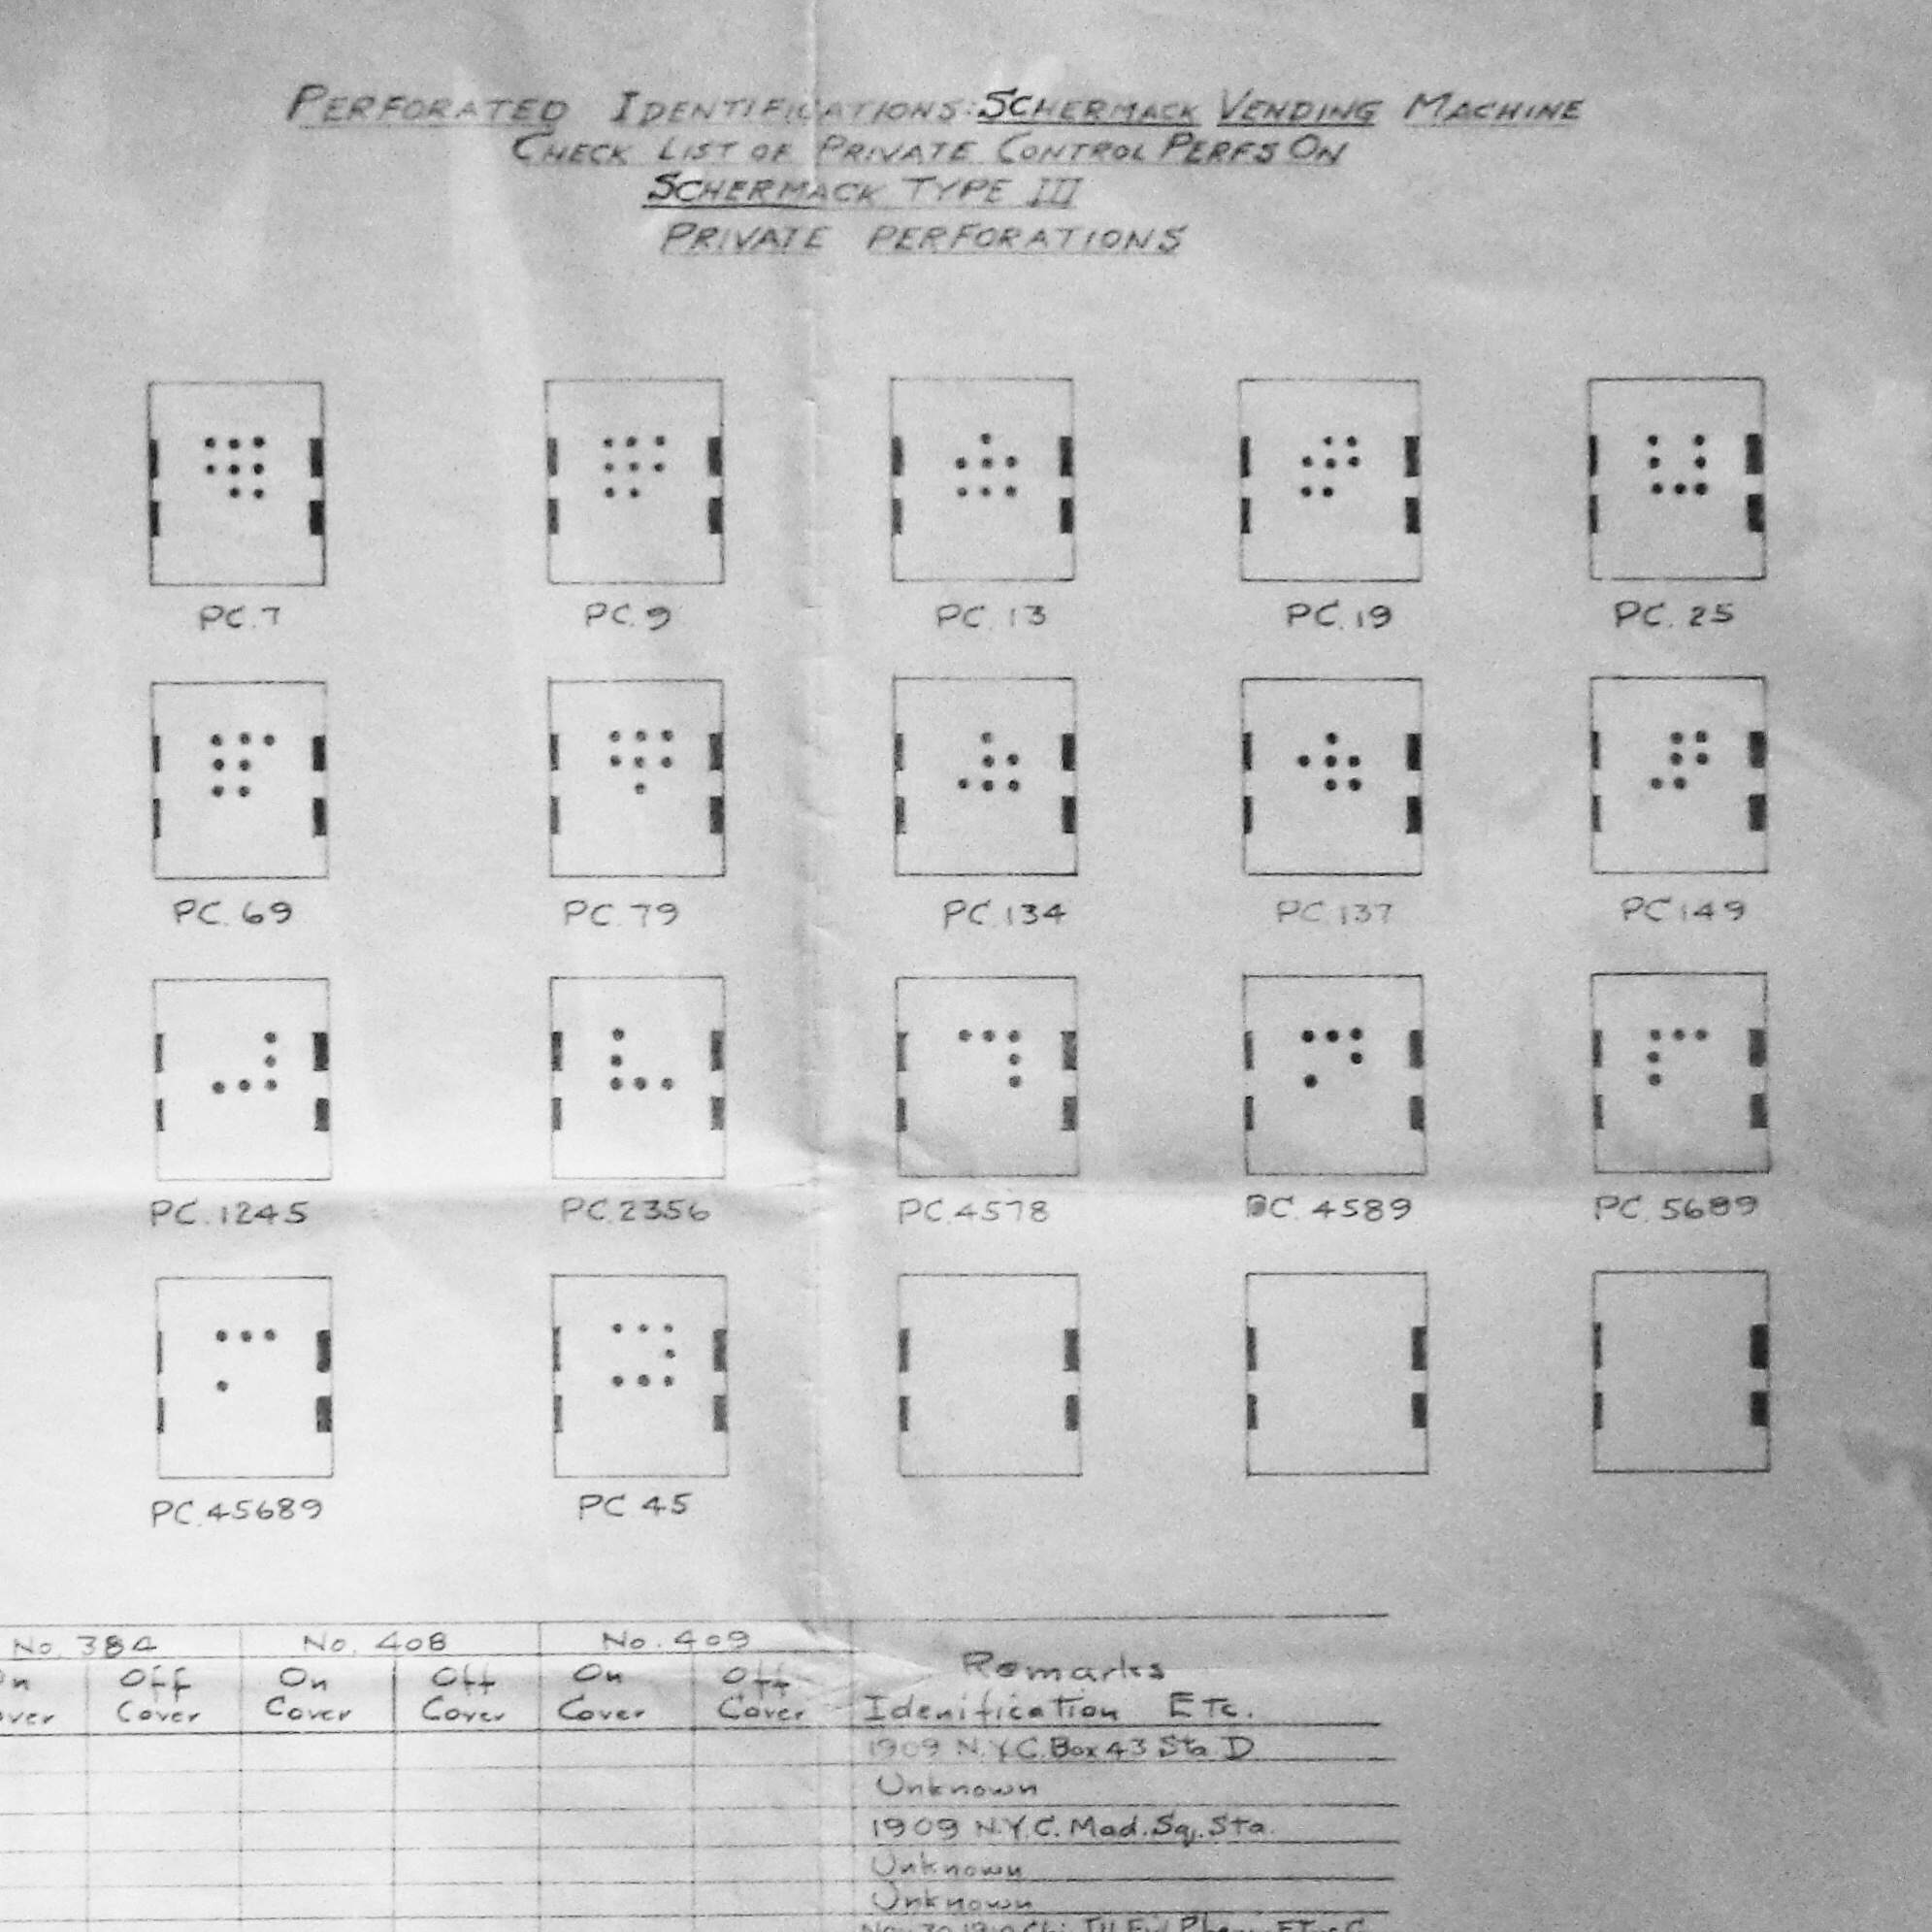 PERFORATED IDENTIFICATIONS: SCHERMACK VENDING MACHINE
CHECK LIST OF PRIVATE CONTROL PERFS ON
SCHERMACK TYPE III
PRIVATE PERFORATIONS
PC.7 PC.9 PC.13 PC.19 PC.25
PC.69 PC.79 PC.134 PC.137 PC 149
PC.1245 PC.2356 PC.4578 PC.4589 PC.5689
PC.45689 PC 45
No. 384 No. 408 No. 409 Remarks
Off On Off On Off
Cover Cover Cover Cover Cover Idenification Etc.
1909 N.Y.C. Box 43 Sta D
Unknown
1909 N.Y.C. Mad. Sq. Sta.
Unknown
Unknown